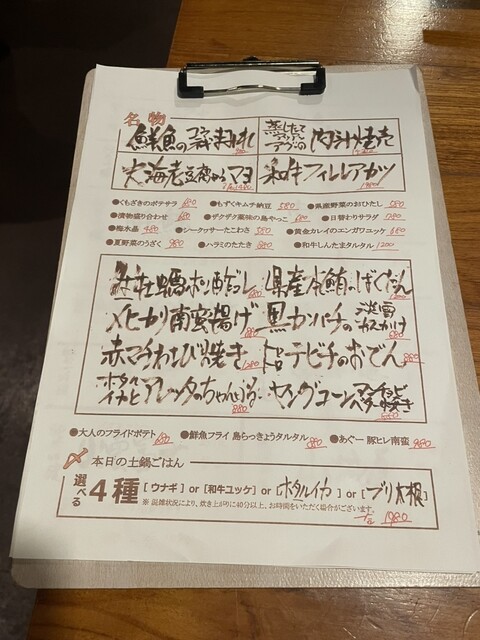 名物
鮮魚の
蒸したて アグーの 肉汁焼売
大海老 マヨ
和牛フィレカツ
●くもざきのポテサラ 680 ●もずくキムチ納豆 580 ●県産野菜のおひたし 580
●漬物盛り合わせ 680 ●ザクザク薬味の島やっこ 680 ●日替わりサラダ 780
●梅水晶 480 ●シークヮーサーたこわさ 580 ●黄金カレイのエンガワユッケ 680
●夏野菜のうざく 980 ●ハラミのたたき 880 ●和牛しんたまタルタル 1200
牡蠣ポン酢ジュレ 県産本鮪のばくだん
メヒカリ南蛮揚げ 黒カンパチの淡雪カスかけ
赤マチわさび焼き 1280 トロトロテビチのおでん 880
ホタルイカと 880 ヤングコーン
●大人のフライドポテト 680 ●鮮魚フライ 島らっきょうタルタル 880 ●あぐー豚ヒレ南蛮 980
〆 本日の土鍋ごはん
選べる 4種 [ウナギ] or [和牛ユッケ] or [ホタルイカ] or [ブリ大根]
※ 混雑状況により、炊き上がりに40分以上、お時間をいただく場合がございます。
1980